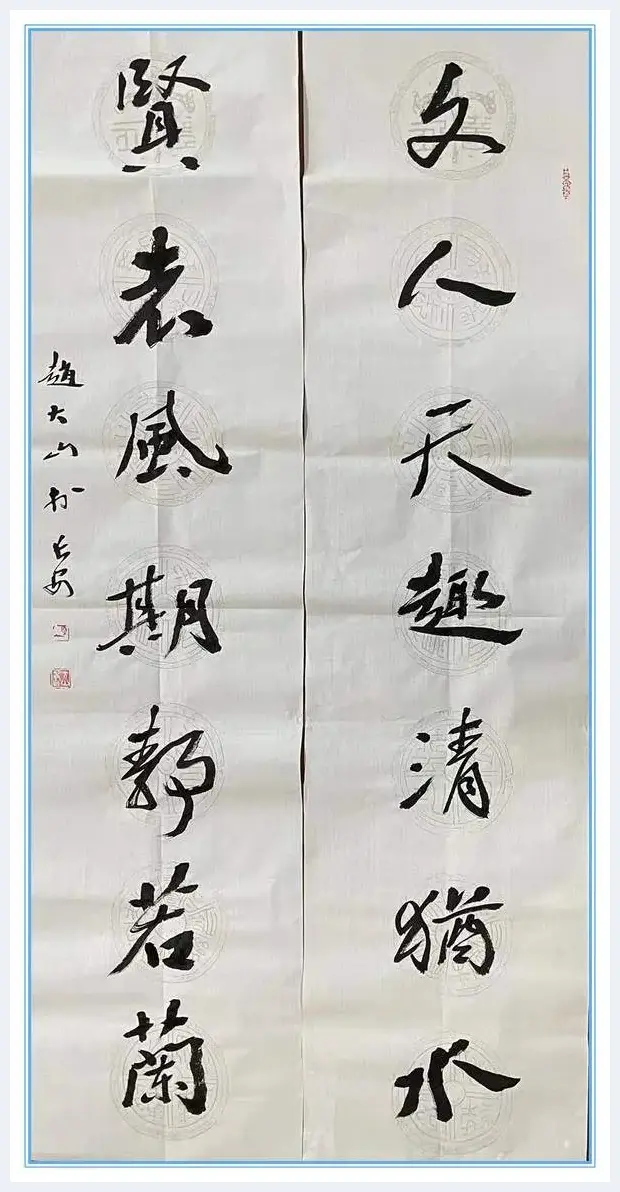 文人天趣清猶水
賢者風期靜若蘭
趙大山於長安